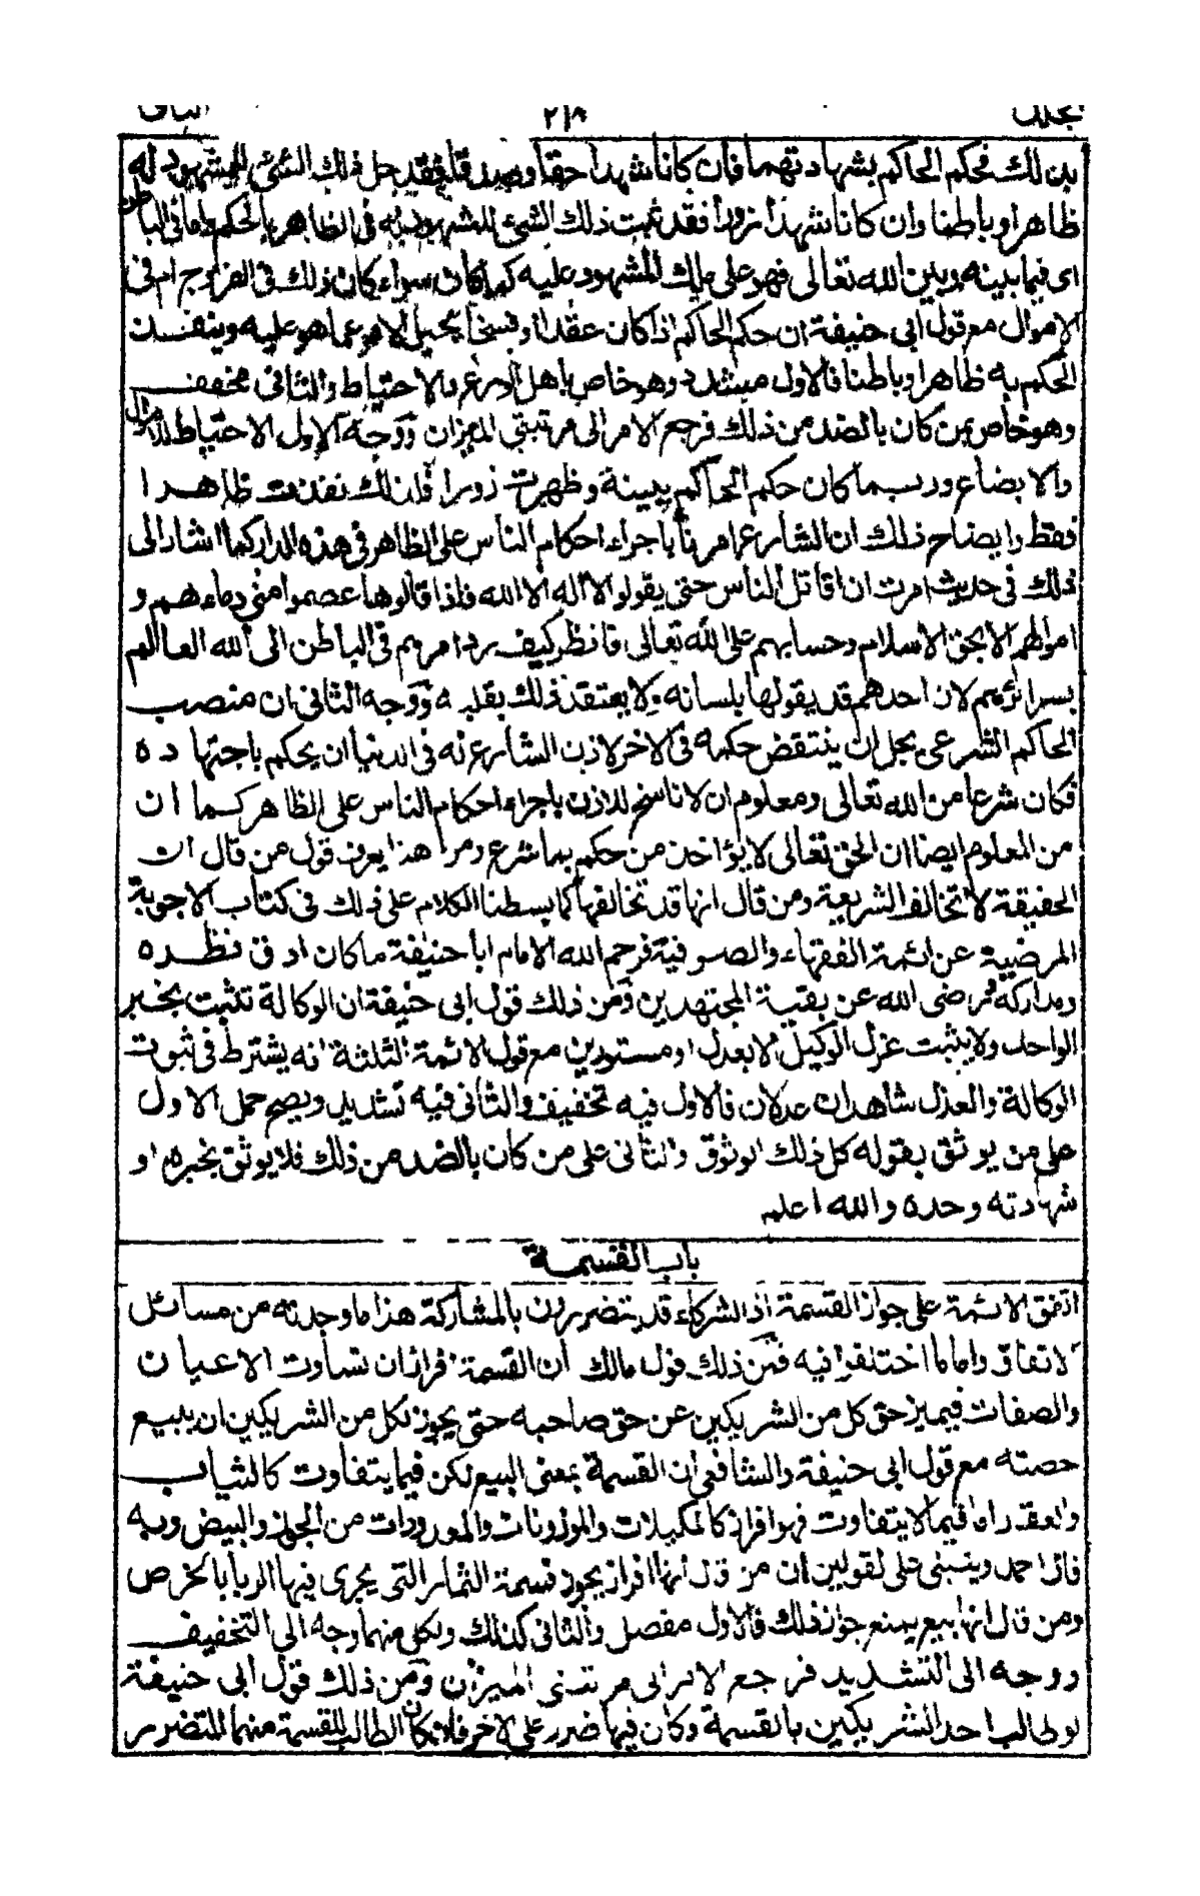 بذلك فحكم الحاكم بشهادتهما فان كانا شهدا حقا وصدقا فقد حل ذلك الشئ للمشهود له
ظاهرا وباطنا وان كانا شهدا زورا فقد ثبت ذلك الشئ للمشهود له فى الظاهر بالحكم واما فى الباطن
اى فيما بينه وبين الله تعالى فهو على ملك المشهود عليه كما كان سواء كان ذلك فى الفروج ام فى
الاموال مع قول ابى حنيفة ان حكم الحاكم اذا كان عقدا او فسخا يحيل الامر عما هو عليه وينفذ
الحكم به ظاهرا وباطنا فالاول مشدد وهو خاص باهل الورع والاحتياط والثانى مخفف
وهو خاص بمن كان بالضد من ذلك فرجع الامر الى مرتبتى الميزان ووجه الاول الاحتياط للاموال
والابضاع وربما كان حكم الحاكم ببينة وظهرت زورا فلذلك نفذت ظاهرا
فقط وايضاح ذلك ان الشارع امرنا باجراء احكام الناس على الظاهر فى هذه الدار كما اشار الى
ذلك فى حديث امرت ان اقاتل الناس حتى يقولوا لا اله الا الله فاذا قالوها عصموا منى دماءهم و
اموالهم الا بحق الاسلام وحسابهم على الله تعالى فانظر كيف رد امرهم فى الباطن الى الله العالم
بسرائرهم لان احدهم قد يقولها بلسانه ولا يعتقد ذلك بقلبه ووجه الثانى ان منصب
الحاكم الشرعى يجل ان ينتقض حكمه فى الاخرة لاذن الشارع له فى الدنيا ان يحكم باجتهاده
فكان شرعا من الله تعالى ومعلوم ان لا ناسخ للاذن باجراء احكام الناس على الظاهر كما ان
من المعلوم ايضا ان الحق تعالى لا يؤاخذ من حكم بما شرع ومن هذا يعرف قول من قال ان
الحقيقة لا تخالف الشريعة ومن قال انها قد تخالفها كما بسطنا الكلام على ذلك فى كتاب الاجوبة
المرضية عن ائمة الفقهاء والصوفية فرحم الله الامام ابا حنيفة ما كان ادق نظره
ومداركه ورضى الله عن بقية المجتهدين ومن ذلك قول ابى حنيفة ان الوكالة تثبت بخبر
الواحد ولا يثبت عزل الوكيل الا بعدل او مستورين مع قول الائمة الثلثة انه يشترط فى ثبوت
الوكالة والعزل شاهدان عدلان فالاول فيه تخفيف والثانى فيه تشديد ويصح حمل الاول
على من يوثق بقوله كل ذلك الوثوق والثانى على من كان بالضد من ذلك فلا يوثق بخبره او
شهادته وحده والله اعلم
باب القسمة
اتفق الائمة على جواز القسمة اذ الشركاء قد يتضررون بالمشاركة هذا ما وجدته من مسائل
الاتفاق واما ما اختلفوا فيه فمن ذلك قول مالك ان القسمة افراز ان تساوت الاعيان
والصفات فيميز حق كل من الشريكين عن حق صاحبه حتى يجوز لكل من الشريكين ان يبيع
حصته مع قول ابى حنيفة والشافعى ان القسمة بمعنى البيع لكن فيما يتفاوت كالثياب
والعقد واما فيما لا يتفاوت فهو افراز كالمكيلات والموزونات والمعدودات من الجوز والبيض وبه
قال احمد وينبنى على القولين ان من قال انها افراز يجوز قسمة الثمار التى يجرى فيها الربا بالخرص
ومن قال انها بيع يمنع جواز ذلك فالاول مفصل والثانى كذلك ولكل منهما وجه الى التخفيف
ووجه الى التشديد فرجع الامر الى مرتبتى الميزان ومن ذلك قول ابى حنيفة
لو طالب احد الشريكين بالقسمة وكان فيها ضرر على الاخر فان كان الطالب للقسمة منهما المتضرر